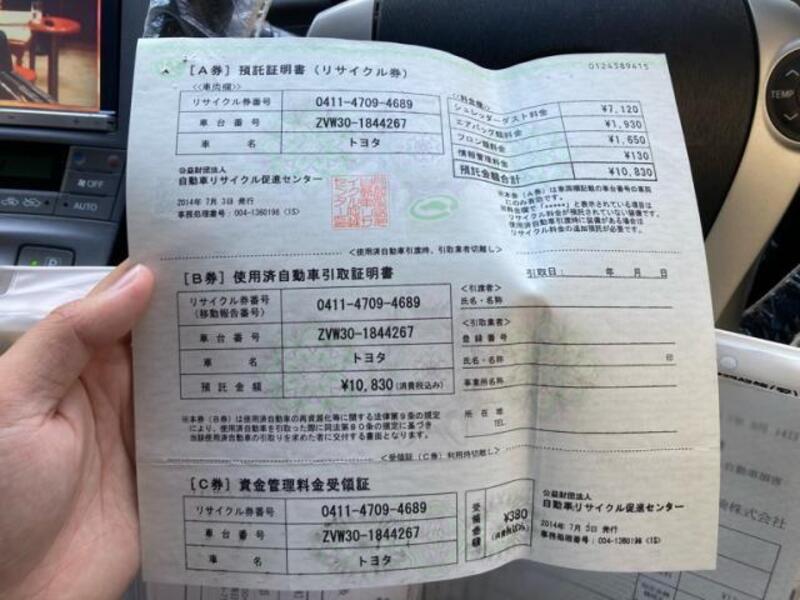 0124389415
[A券] 預託証明書 (リサイクル券)
<<車両欄>>
リサイクル券番号 0411-4709-4689
車台番号 ZVW30-1844267
車名 トヨタ
<<料金欄>>
シュレッダーダスト料金 ¥7,120
エアバッグ類料金 ¥1,930
フロン類料金 ¥1,650
情報管理料金 ¥130
預託金額合計 ¥10,830
公益財団法人
自動車リサイクル促進センター
2014年 7月 3日 発行
事務処理番号：004-1360198 (1S)
※本券（A券）は車両欄記載の車台番号の車両
にのみ有効です。
※料金欄で「*****」と表示されている項目は
リサイクル料金が預託されていない装備です。
使用済自動車引渡時に装備がある場合は
リサイクル料金の追加預託が必要です。
<使用済自動車引渡時、引取業者切離し>
[B券] 使用済自動車引取証明書
引取日： 年 月 日
リサイクル券番号
(移動報告番号) 0411-4709-4689
車台番号 ZVW30-1844267
車名 トヨタ
預託金額 ¥10,830(消費税込み)
<引渡者>
氏名・名称
<引取業者>
登録番号
氏名・名称 印
事業所名称
所在地
TEL
※本券（B券）は使用済自動車の再資源化等に関する法律第9条の規定
により、使用済自動車を引取った際に同法第80条の規定に基づき
当該使用済自動車の引取りを求めた者に交付する書面となります。
<受領証（C券）利用時切離し>
[C券] 資金管理料金受領証
リサイクル券番号 0411-4709-4689
車台番号 ZVW30-1844267
車名 トヨタ
受領金額 ¥380
公益財団法人
自動車リサイクル促進センター
2014年 7月 3日 発行
事務処理番号：004-1360198 (1S)
TEMP
OFF
AUTO
P
株式会社